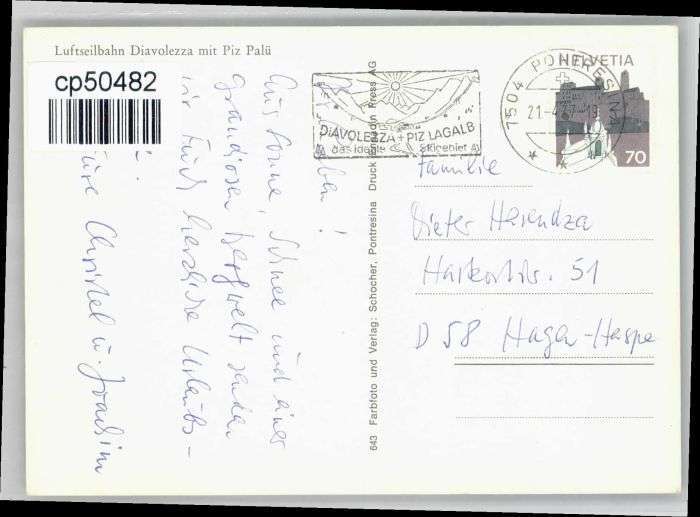 Luftseilbahn Diavolezza mit Piz Palü
cp50482
Ihr Lieben!
Aus Sonne, Schnee und einer
grandiosen Bergwelt senden
wir Euch herzliche Urlaubs-
Eure Christel u. Joachim
643 Farbfoto und Verlag: Schocher, Pontresina Druck Engadin Press AG
DIAVOLEZZA + PIZ LAGALB
das ideale Skigebiet
7504 PONTRESINA
21-4
HELVETIA
70
Familie
Dieter Harendza
Harkortstr. 51
D 58 Hagen-Haspe